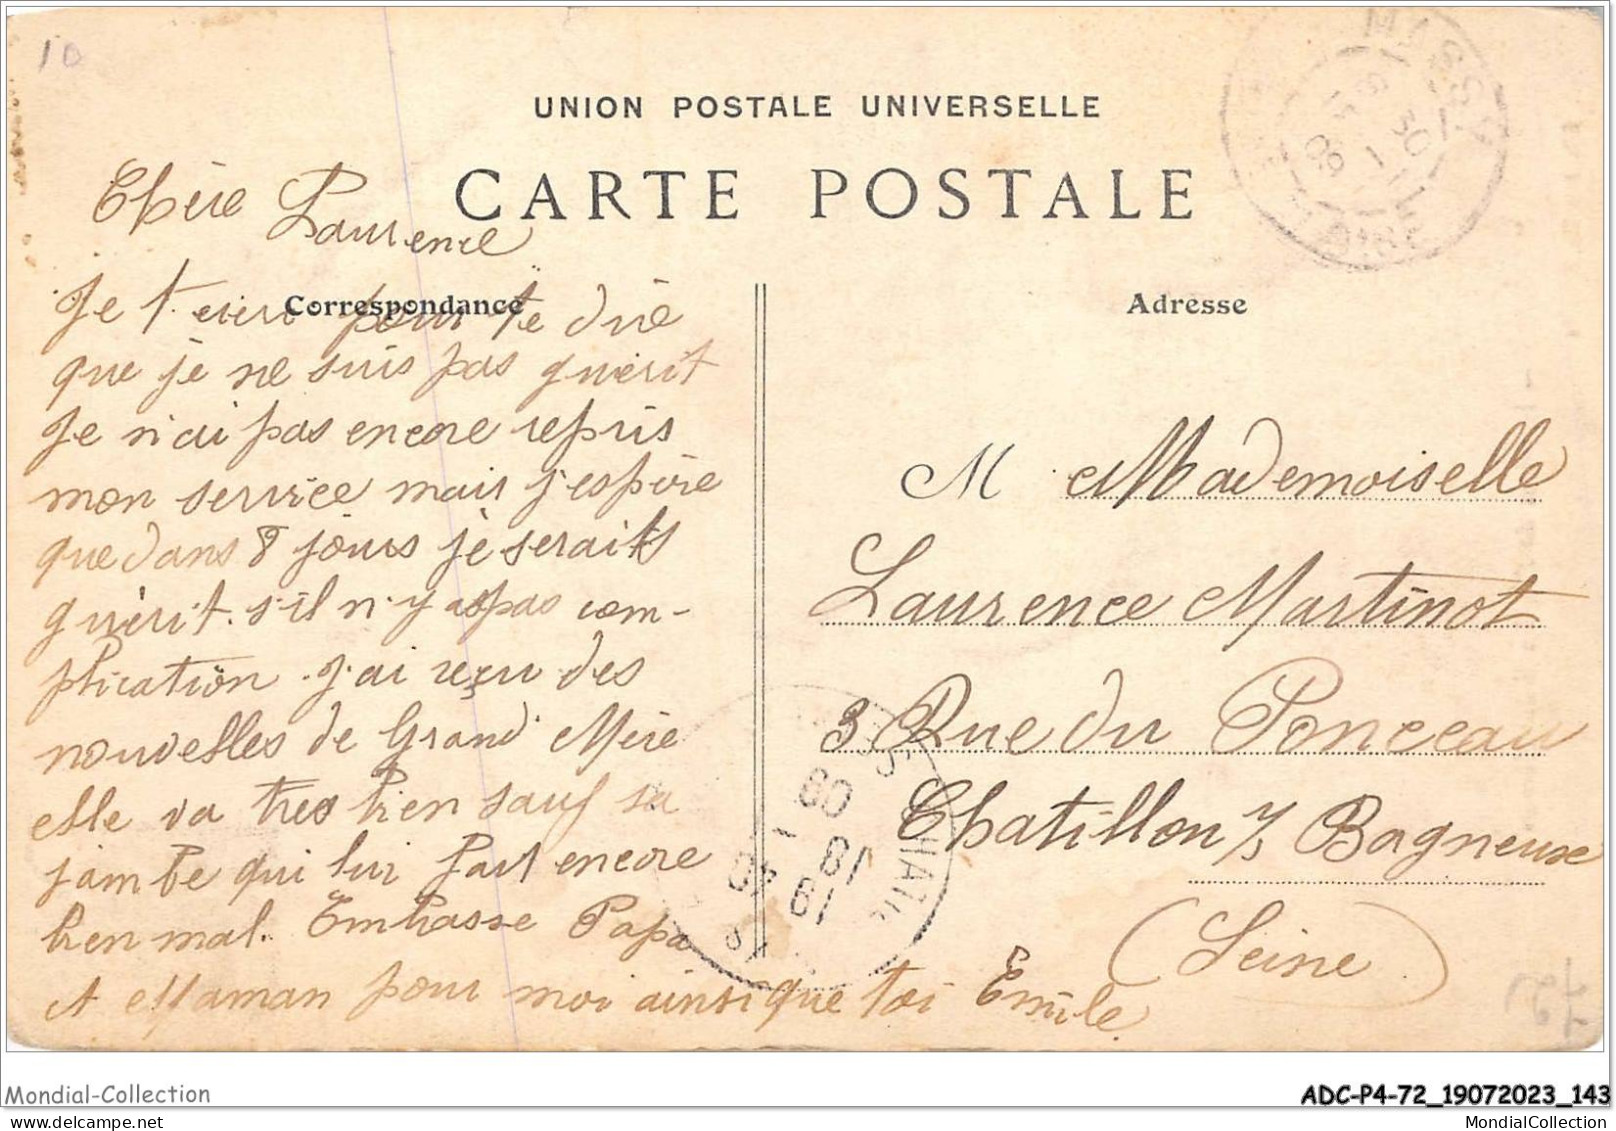 10
UNION POSTALE UNIVERSELLE
CARTE POSTALE
Chère Laurence
Correspondance
Je t'ecris pour te dire
que je ne suis pas guèrit
Je n'ai pas encore repris
mon service mais j'espère
que dans 8 jours je seraits
guèrit. s'il n'y a pas com-
plication. J'ai reçu des
nouvelles de Grand Mère
elle va tres bien sauf sa
jambe qui lui fait encore
bien mal. Embrasse Papa
et Maman pour moi ainsi que toi Emile
Adresse
M Mademoiselle
Laurence Martinot
3 Rue du Ponceau
Chatillon s/s Bagneuse
(Seine)
Mondial-Collection
ADC-P4-72_19072023_143
MondialCollection